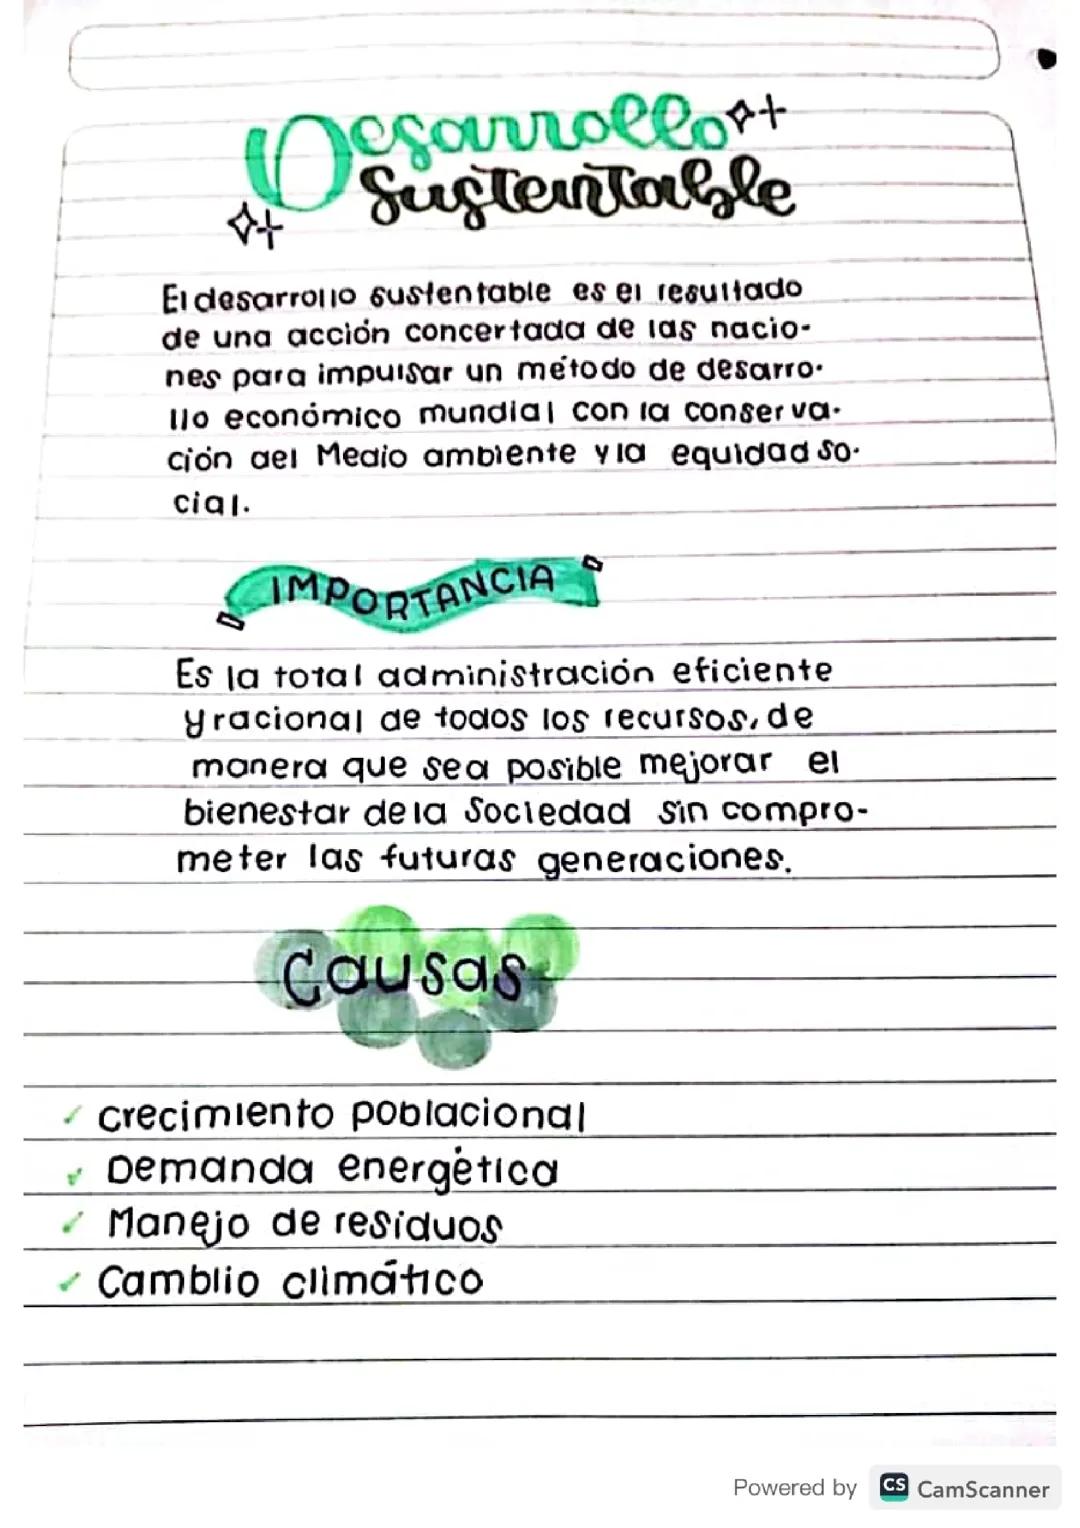 Desarrollo
Sustentable
El desarrollo sustentable es el resultado
de una acción concertada de las nacio-
nes para impulsar un método de desarro-
llo económico mundial con la conserva-
ción del Medio ambiente y la equidad so-
cial.
IMPORTANCIA
Es la total administración eficiente
y racional de todos los recursos, de
manera que sea posible mejorar el
bienestar de la Sociedad sin compro-
meter las futuras generaciones.
Causas
crecimiento poblacional
Demanda energética
Manejo de residuos
Camblio climático
Powered by CS CamScanner